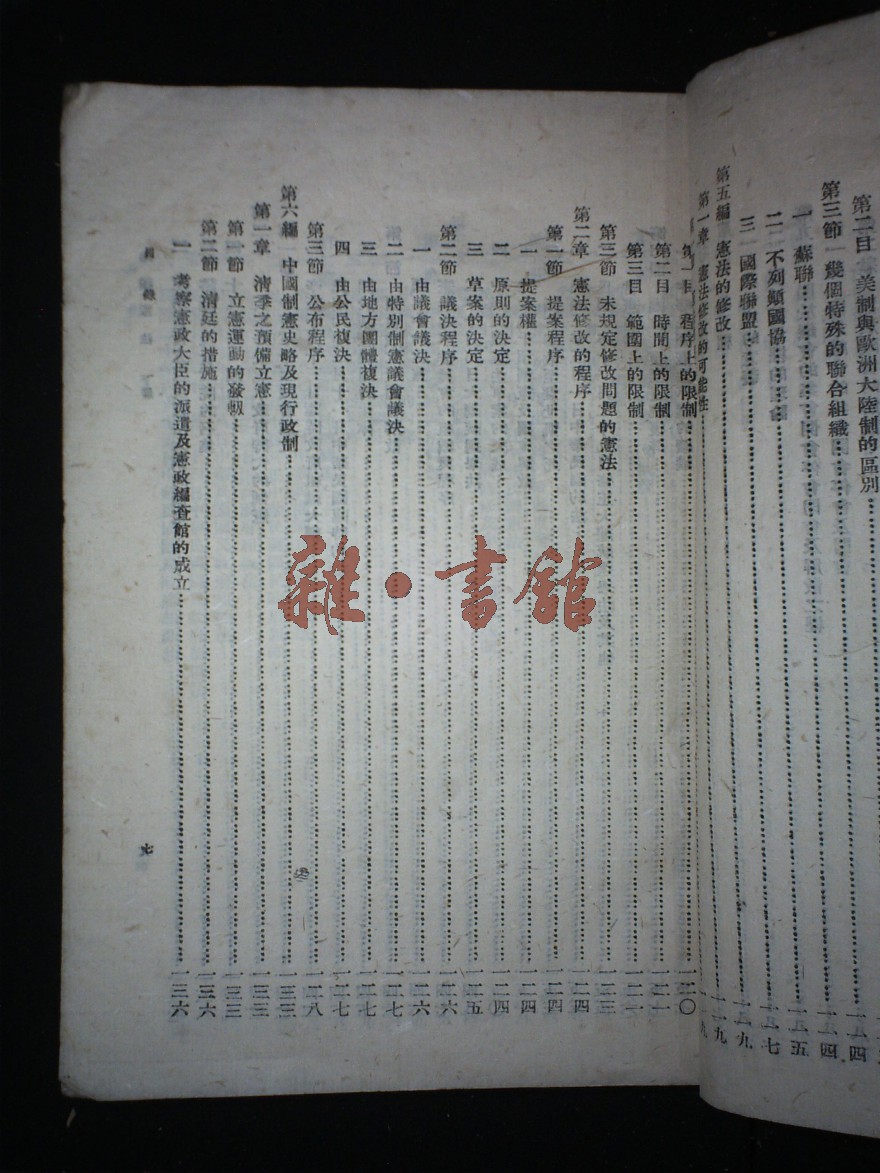 第二目 美制與歐洲大陸制的區別
第三節 幾個特殊的聯合組織 一一四
一 蘇聯 一一五
二 不列顛國協 一一七
三 國際聯盟 一一九
第五編 憲法的修改 一一九
第一章 憲法修改的可能性
第一目 程序上的限制 一二〇
第二目 時間上的限制 一二一
第三目 範圍上的限制 一二一
第三節 未規定修改問題的憲法 一二三
第二章 憲法修改的程序 一二四
第一節 提案程序 一二四
一 提案權 一二四
二 原則的決定 一二四
三 草案的決定 一二五
第二節 議決程序 一二六
一 由議會議決 一二六
二 由特別制憲議會議決 一二七
三 由地方團體複決 一二七
四 由公民複決 一二七
第三節 公布程序 一二八
第六編 中國制憲史略及現行政制 一三三
第一章 清季之預備立憲 一三三
第一節 立憲運動的發軔 一三三
第二節 清廷的措施 一三六
一 考察憲政大臣的派遣及憲政編查館的成立 一三六
目錄
七
雜·書館